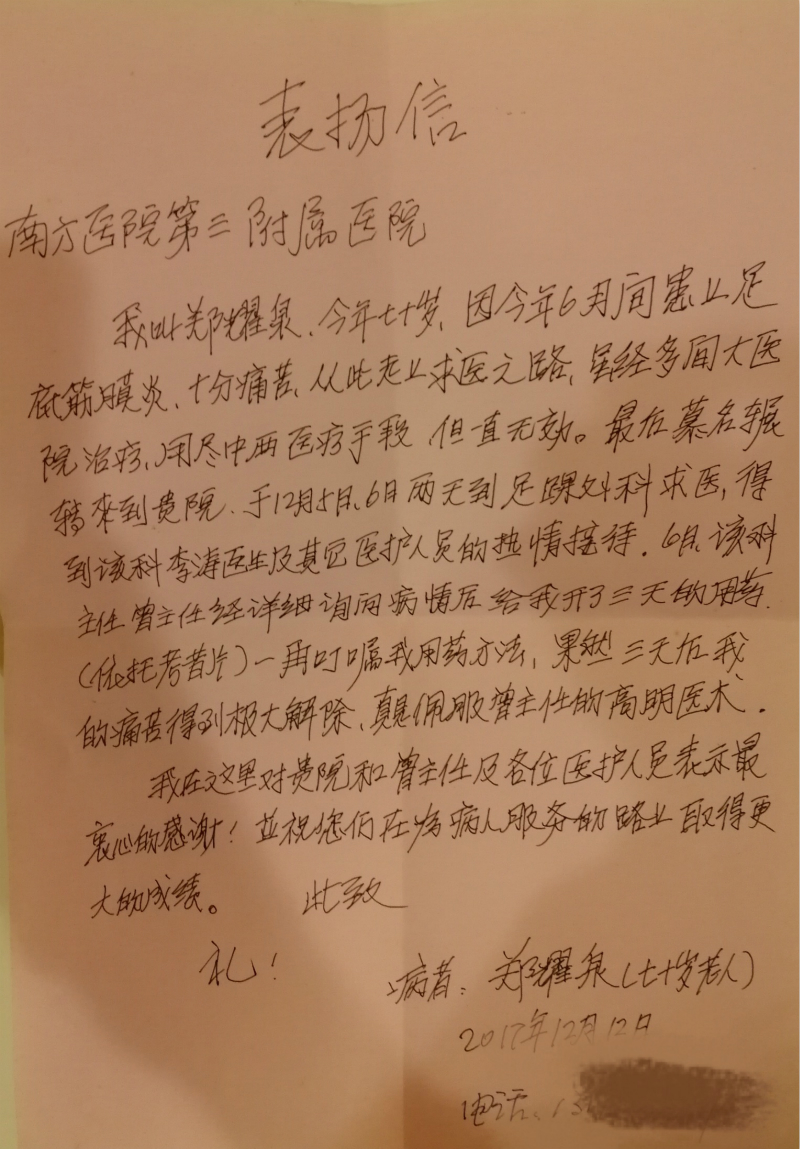 表扬信
南方医院第三附属医院
我叫郑耀泉、今年七十岁、因今年6月间患上足
底筋膜炎、十分痛苦、从此走上求医之路、虽经多间大医
院治疗、用尽中西医疗手段 但一直无效。最后慕名辗
转来到贵院、于12月5日、6日两天到足踝外科求医，得
到该科李涛医生及其它医护人员的热情接待．6日、该科
主任曾主任经详细询问病情后给我开了三天的用药．
（依托考昔片）一再叮嘱我用药方法，果然三天后我
的痛苦得到极大解除、真是佩服曾主任的高明医术．
我在这里对贵院和曾主任及各位医护人员表示最
衷心的感谢！並祝您们在为病人服务的路上取得更
大的成绩。 此致
礼！
病者：郑耀泉（七十岁老人）
2017年12月12日
电话、13